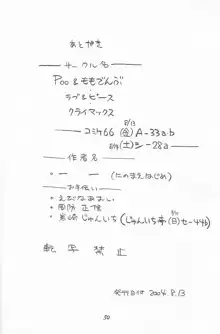 あとがき
サークル名
Poo & ももでんぶ
ラブ&ピース
クライマックス
8/13
コミケ66 (金) A-33a.b
8/14 (土) シ-28a
作者名
・一 一 (にのまえはじめ)
お手伝い
・えむなああい
・周防 正性
・岩崎 じゅんいち (じゅんいち亭 8/15 (日) セ-44b)
転写禁止
発行日付 2004.8.13
50